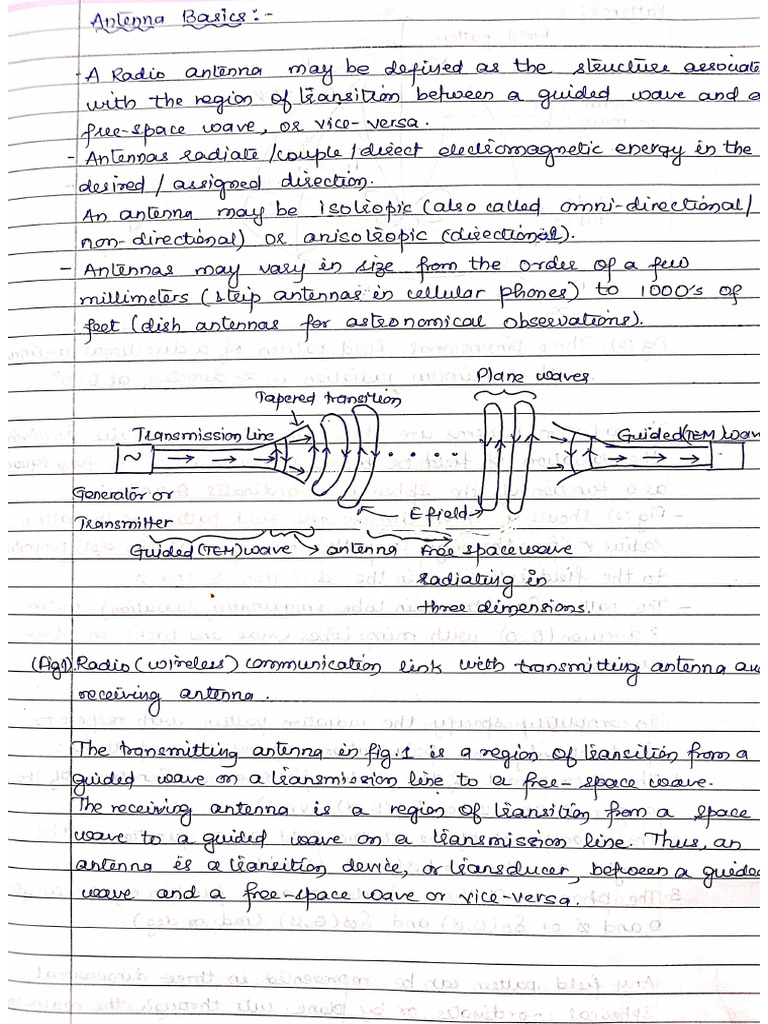 Antenna Basics:-
- A Radio antenna may be defined as the structure associate
with the region of transition between a guided wave and a
free-space wave, or vice-versa.
- Antennas radiate/couple/direct electromagnetic energy in the
desired/assigned direction.
An antenna may be isotropic (also called omni-directional/
non-directional) or anisotropic (directional).
- Antennas may vary in size from the order of a few
millimeters (strip antennas in cellular phones) to 1000's of
feet (dish antennas for astronomical observations).
Plane waves
Tapered transition
Transmission line
Guided(TEM) wave
~
Generator or
Transmitter
E field
Guided(TEM) wave → antenna
Free space wave
radiating in
three dimensions.
(fig1). Radio (wireless) communication link with transmitting antenna and
receiving antenna.
The transmitting antenna in fig.1 is a region of transition from a
guided wave on a transmission line to a free-space wave.
The receiving antenna is a region of transition from a space
wave to a guided wave on a transmission line. Thus, an
antenna is a transition device, or transducer, between a guided
wave and a free-space wave or vice-versa.